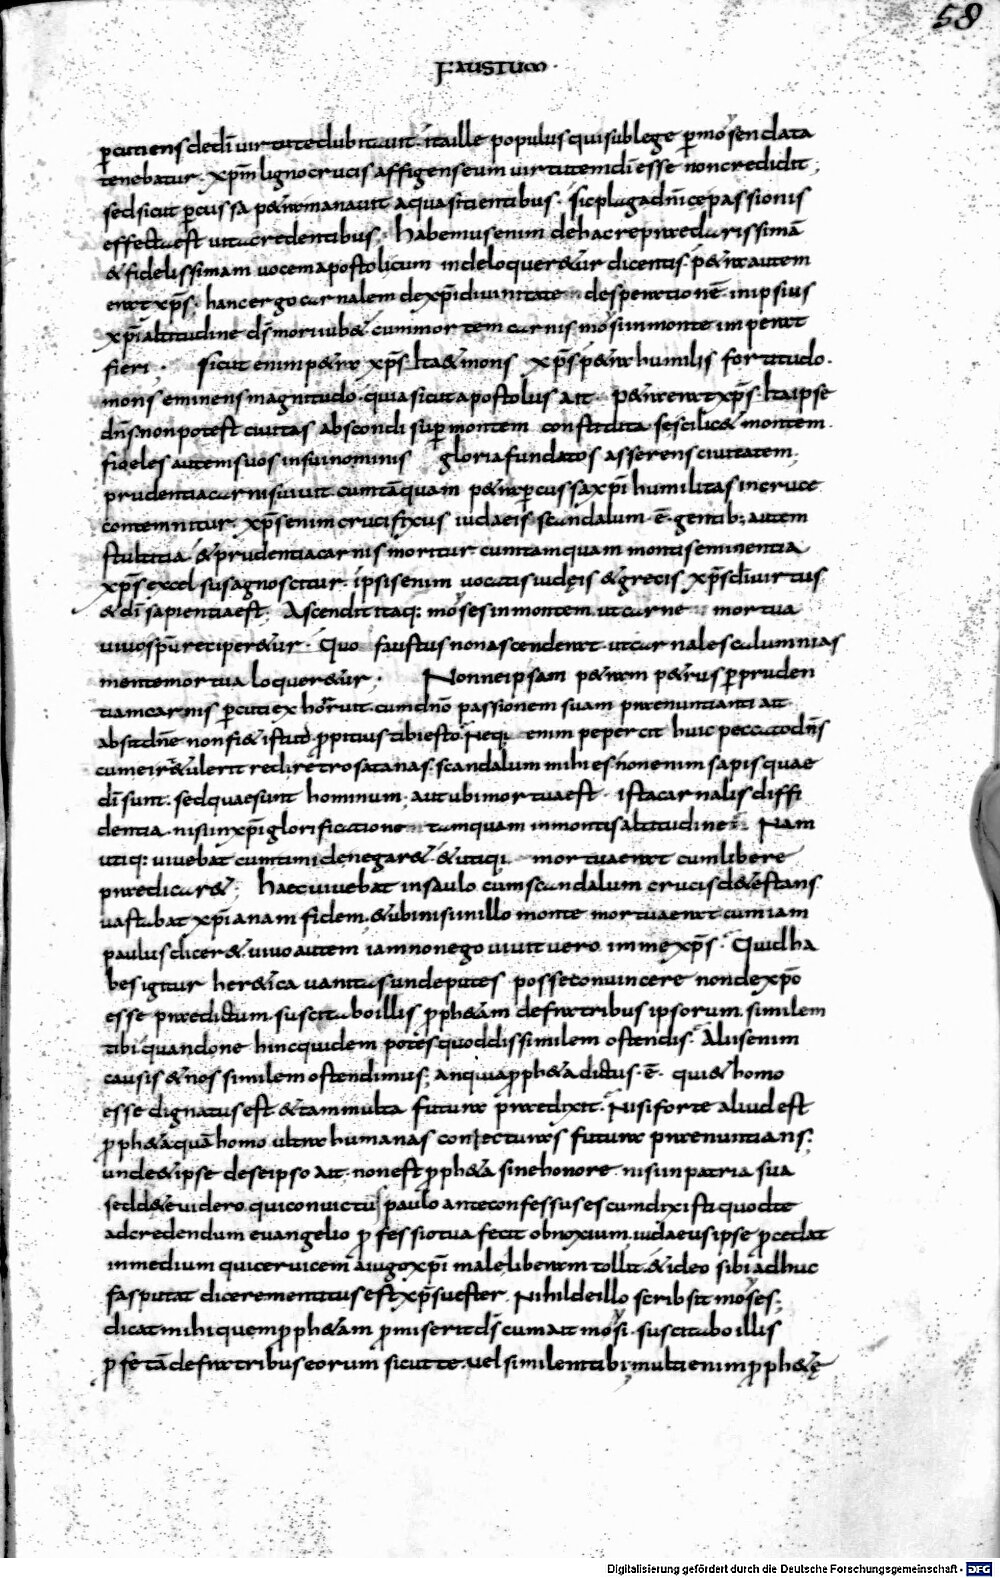 58
FAUSTUM
p̄cutiens dedī virtute dubitavit. ita ille populus qui sub lege p̄ mosen data
tenebatur. xp̄m ligno crucis affigens eum virtutem dī esse non credidit;
sed sicut p̄cussa petra manavit aqua sitientibus. sic plaga dn̄ice passionis
effecta est vita credentibus; habemus enim de hac re praeclarissimā
& fidelissimam vocem apostolicam inde loqueretur dicentis. petra autem
erat xp̄s. hanc ergo carnalem de xp̄i divinitate desperationē. in ipsius
xp̄i altitudine d̄s mori iub& cum mortem carnis mosi in monte imperat
fieri; sicut enim petra xp̄s. ita & mons xp̄s. petra humilis fortitudo.
mons eminens magnitudo. quia sicut apostolus ait petra erat xp̄s. ita ipse
dn̄s. non potest civitas abscondi sup̄ montem constituta. se scilic& montem
fideles autem suos in sui nominis gloria fundatos asserens civitatem.
prudentia carnis vivit cum tāquam petra p̄cussa xp̄i humilitas in cruce
contemnitur. xp̄s enim crucifixus iudaeis scandalum ē. gentib; autem
stultitia. & prudentia carnis moritur cum tamquam montis eminentia
xp̄s excelsus agnoscitur. ipsis enim vocatis iudęis & grecis xp̄s dī virtus
& dī sapientia est; Ascendit itaq: moyses in montem ut carne mortua
vivo sp̄u reciperetur. Quo faustus non ascenderat ut carnales calumnias
mente mortua loqueretur; Nonne ipsam petram petrus p̄ pruden
tiam carnis p̄cuti exhorruit. cum dn̄o passionem suam praenuntianti ait
absit dn̄e non fi& istud p̄pitius tibi esto. Neq; enim pepercit huic peccato dn̄s
cum ei retulerit redi retro satanas. scandalum mihi es. non enim sapis quae
dī sunt. sed quae sunt hominum. aut ubi mortua est ista carnalis diffi
dentia. nisi in xp̄i glorificatione tamquam in montis altitudine. Nam
utiq: vivebat cum timide negar&. & utiq; mortua erat cum libere
praedicar&; haec vivebat in saulo cum scandalum crucis detestans
vastabat xp̄ianam fidem. & ubi nisi in illo monte mortua erat cum iam
paulus dicer& vivo autem iam non ego vivit vero in me xp̄s. Quid ha
bes igitur her&ica vanitas unde putes posse convincere non de xp̄o
esse praedictum. suscitabo illis p̄ph&am de fratribus ipsorum. similem
tibi quando ne hinc quidem potes quod dissimilem ostendis. Aliis enim
causis & nos similem ostendimus; an quia p̄ph&a dictus. ē. qui & homo
esse dignatus est & tam multa futura praedixit. Nisi forte aliud est
p̄ph&a quā homo ultra humanas coniecturas futura praenuntians;
unde & ipse de se ipso ait. non est p̄ph&a sine honore. nisi in patria sua
sed de te videro. qui convictū paulo ante confessus es cum dixisti quod te
ad credendum evangelio p̄fessio tua fecit obnoxium. iudaeus ipse p̄cedat
in medium qui cervicem a iugo xp̄i male liberam tollit. & ideo sibi adhuc
fas putat dicere mentitus est xp̄s vester. Nihil de illo scribsit moses;
dicat mihi quem p̄ph&am p̄miserit d̄s cum ait mosi. suscitabo illis
p̄fetā de fratribus eorum sicut te. vel similem tibi; multi enim p̄ph&ę
Digitalisierung gefördert durch die Deutsche Forschungsgemeinschaft - DFG